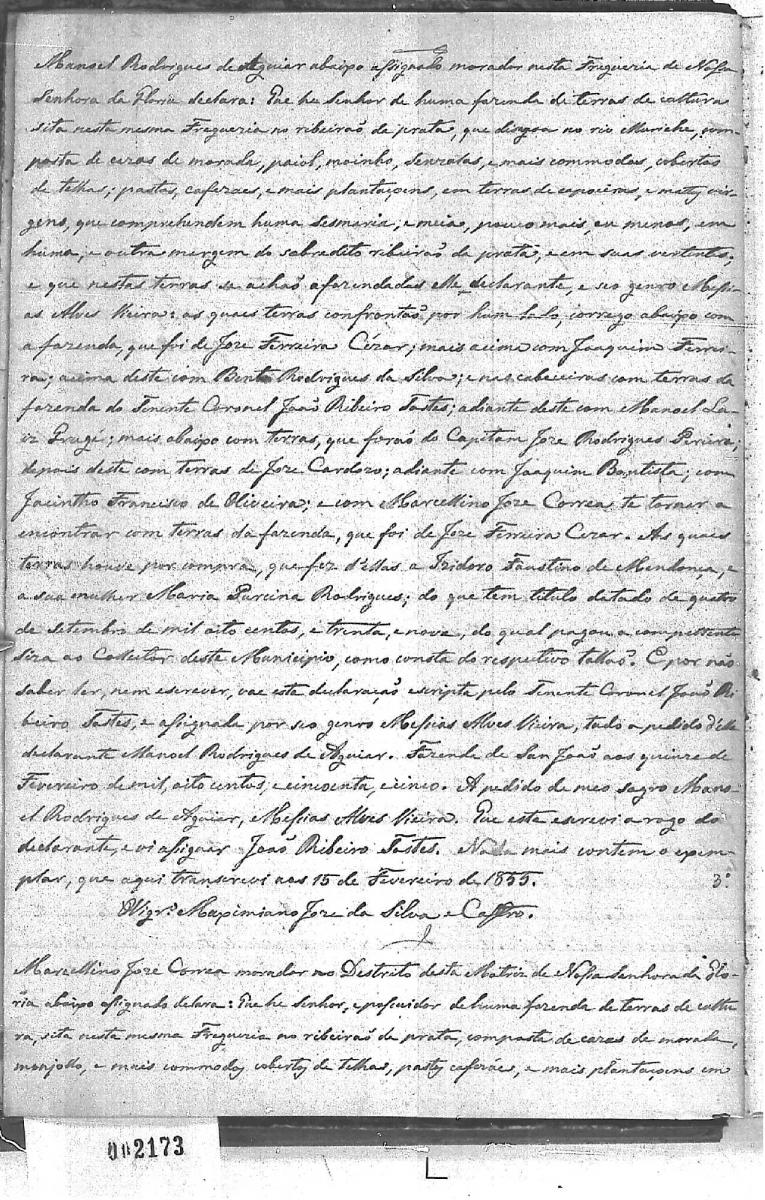 Manoel Rodrigues de Aguiar abaixo assignado morador nesta Fregueria de Nossa
Senhora da Gloria declara: Que he senhor de huma fazenda de terras de cultura
sita nesta mesma Fregueria no ribeiraõ de prata, que disagoa no rio Muriehe, com-
posta de cazas de morada, paiol, moinho, senzalas, e mais commodos, cobertos
de telhas; pastos, cafezaes, e mais plantaçoens, em terras de capoeiras, e mattos vir-
gens, que comprehendem huma sesmaria, e meia, pouco mais, ou menos, em
huma, e outra margem do sobredito ribeiraõ de prata, e em suas vertentes;
e que nestas terras se achaõ afazendados elle declarante, e seo genro Messi-
as Alves Vieira: as quaes terras confrontaõ por hum lado, corrego abaixo com
a fazenda, que foi de Joze Ferreira Cézar; mais acima com Joaquim Ferrei-
ra; acima deste com Bento Rodrigues da Silva; e nas cabeceiras com terras da
fazenda do Tenente Coronel Joaõ Ribeiro Tostes; adiante deste com Manoel Lu-
iz; mais abaixo com terras, que foraõ do Capitam Joze Rodrigues Pereira;
depois deste com terras de Joze Cardozo; adiante com Joaquim Bautista; com
Jacintho Francisco de Oliveira; e com Marcellino Joze Correa, te tornar a
encontrar com terras da fazenda, que foi de Joze Ferreira Cezar. As quaes
terras houve por compra, que fez d'ellas a Izidoro Faustino de Mendonça, e
a sua mulher Maria Rodrigues; do que tem titulo datado de quatro
de setembro de mil oito centos, e trinta, e nove, do qual pagou a competente
siza ao Collector deste Municipio, como consta do respetivo talhaõ. E por naõ
saber ler, nem escrever, vae esta declaraçaõ escripta pelo Tenente Coronel Joaõ Ri-
beiro Tostes, e assignada por seo genro Messias Alves Vieira, tudo a pedido d'elle
declarante Manoel Rodrigues de Aguiar. Fazenda de San Joaõ aos quinze de
Fevereiro de mil, oito centos, e cincoenta, e cinco. A pedido de meo sogro Mano-
el Rodrigues de Aguiar, Messias Alves Vieira. Que este escrevi a rogo do
declarante, e vi assignar Joaõ Ribeiro Tostes. Nada mais contem o exem-
plar, que aqui transcrevi aos 15 de Fevereiro de 1855. 3º
O Vigrº Maximiano Joze da Silva e Castro.
Marcellino Joze Correa morador no Destrito desta Matriz de Nossa Senhora da Glo-
ria abaixo assignado delara: Que he senhor, e possuidor de huma fazenda de terras de cultu-
ra, sita nesta mesma Fregueria no ribeiraõ de prata, composta de cazas de morada,
monjollo, e mais commodos cobertos de telhas, pastos cafezáes, e mais plantaçoens em
002173